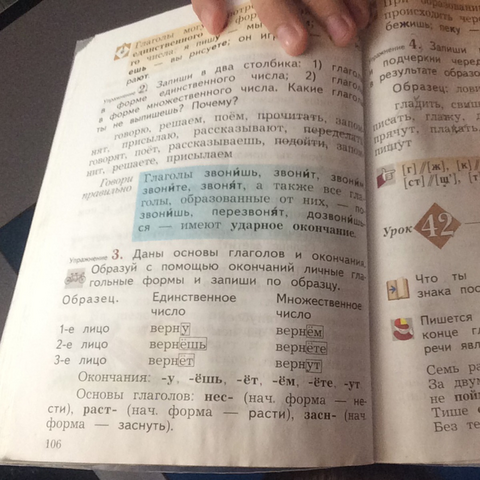 Глаголы
единственного
то числа: я пишу — мы
ешь — вы рисуете; он
рают
Упражнение 2. Запиши в два столбика: 1) глаголы
в форме единственного числа; 2)
в форме множественного числа. Какие глаголы
ты не выпишешь? Почему?
говорю, решаем, поём, прочитать,
нят, присылаю, рассказывают,
говорят, поёт, рассказываешь, подойти,
нит, решаете, присылаем
Говори
правильно
Глаголы звони́шь, звони́т,
звони́те, звоня́т, а также все гла-
голы, образованные от них, — по-
звони́шь, перезвоня́т, дозвони́шь-
ся — имеют ударное окончание.
Упражнение 3. Даны основы глаголов и окончания.
Образуй с помощью окончаний личные гла-
гольные формы и запиши по образцу.
Образец. Единственное Множественное
число число
1-е лицо верну вернём
2-е лицо вернёшь вернёте
3-е лицо вернёт вернут
Окончания: -у, -ёшь, -ёт, -ём, -ёте, -ут
Основы глаголов: нес- (нач. форма — не-
сти), раст- (нач. форма — расти), засн- (нач.
форма — заснуть).
106
При
происходить
бежишь; пеку —
Упражнение 4. Запиши
и подчеркни
в результате
Образец:
гладить,
писать, глажу,
прячут,
пишут
[г]/[ж], [к]
[ст]/[щ']
Урок 42
Что ты
знака
Пишется
конце
речи
Семь
За
не
Тише
Без